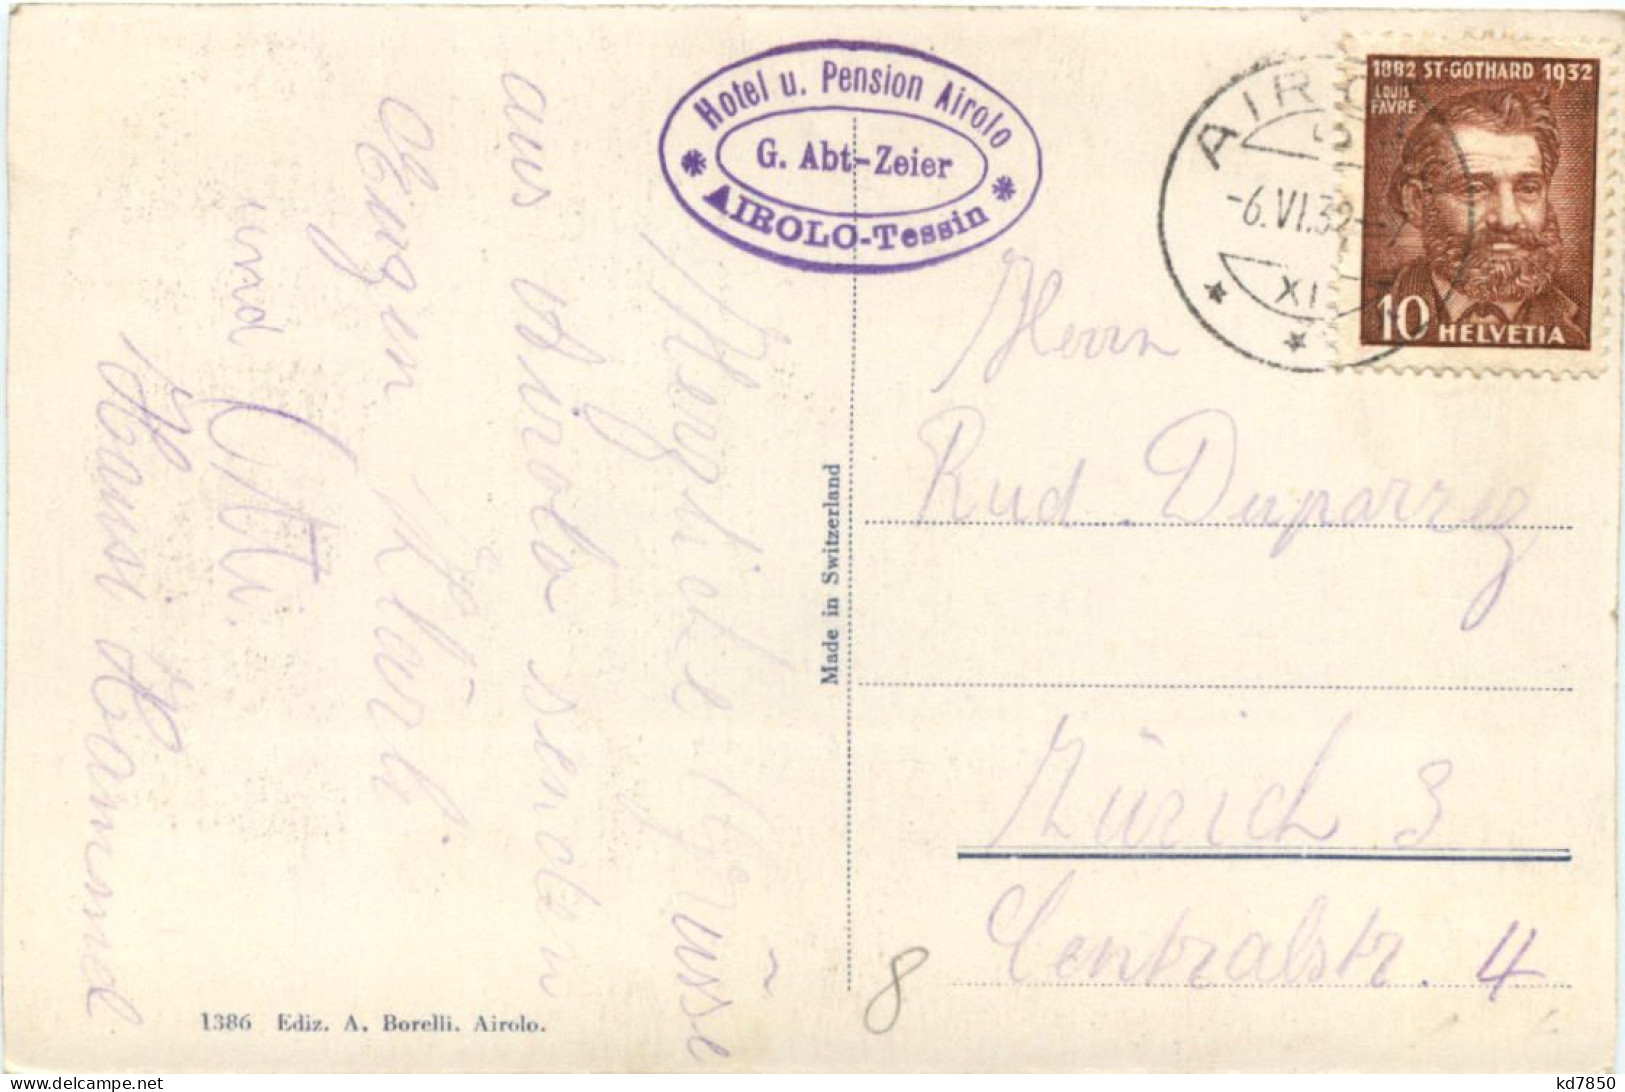 Hotel u. Pension Airolo
G. Abt-Zeier
AIROLO-Tessin
AIRO
-6.VI.32
XI
1882 ST-GOTHARD 1932
LOUIS
FAVRE
10 HELVETIA
Herzliche Grüsse
aus Airolo senden
Eugen Klärli.
und Otti.
Hansi Hammel
Made in Switzerland
1386 Ediz. A. Borelli. Airolo.
Herrn
Rud. Duparreg
Zürich 3
Centralstr. 4
8
kd7850